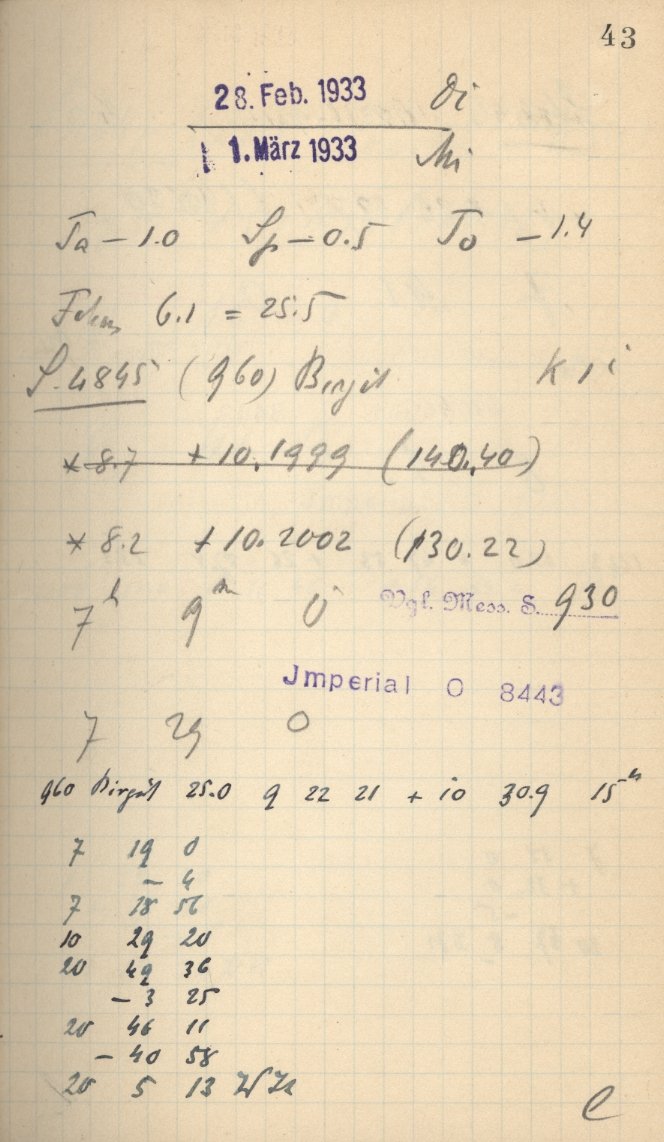 43
28. Feb. 1933 Di
1. März 1933 Mi
Ta - 1.0 Sp - 0.5 To - 1.4
6.1 = 25.5
S. 4845 (960) Birgit K 1
* 8.7 + 10.1999 (140.40)
* 8.2 + 10.2002 (130.22)
7h 9m 0
Vgl. Mess. S. 930
Jmperial O 8443
7 29 0
960 Birgit 25.0 9 22 21 + 10 30.9 15m
7 19 0
- 4
7 18 56
10 29 20
20 49 36
- 3 25
20 46 11
- 40 58
20 5 13